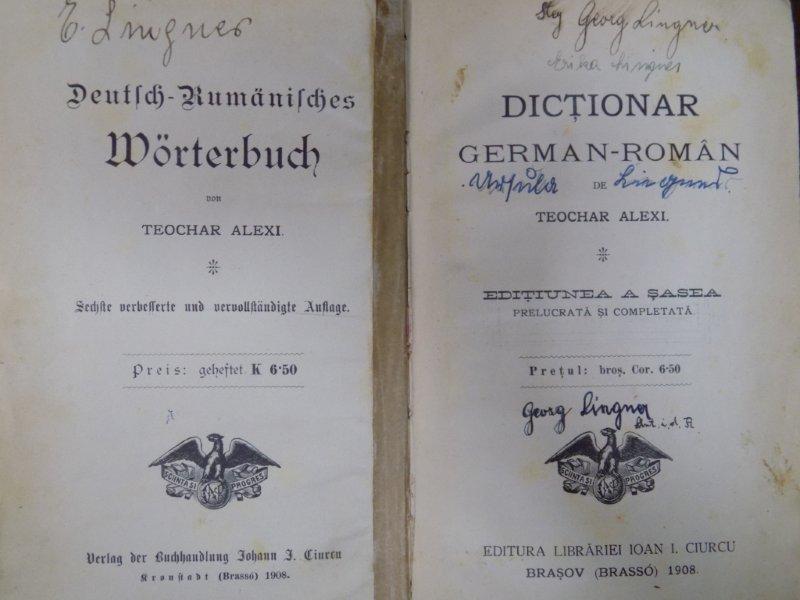 E. Lingner
Deutsch-Rumänisches
Wörterbuch
von
TEOCHAR ALEXI.
Sechste verbesserte und vervollständigte Auflage.
Preis: geheftet K 6·50
ȘCIINȚA ȘI PROGRES
Verlag der Buchhandlung Johann I. Ciurcu
Kronstadt (Brassó) 1908.
Georg Lingner
Erika Lingner
DICȚIONAR
GERMAN-ROMÂN
Ursula DE Lingner.
TEOCHAR ALEXI.
EDIȚIUNEA A ȘASEA
PRELUCRATĂ ȘI COMPLETATĂ
Prețul: broș. Cor. 6·50
Georg Lingner
ȘCIINȚA ȘI PROGRES
EDITURA LIBRĂRIEI IOAN I. CIURCU
BRAȘOV (BRASSÓ) 1908.